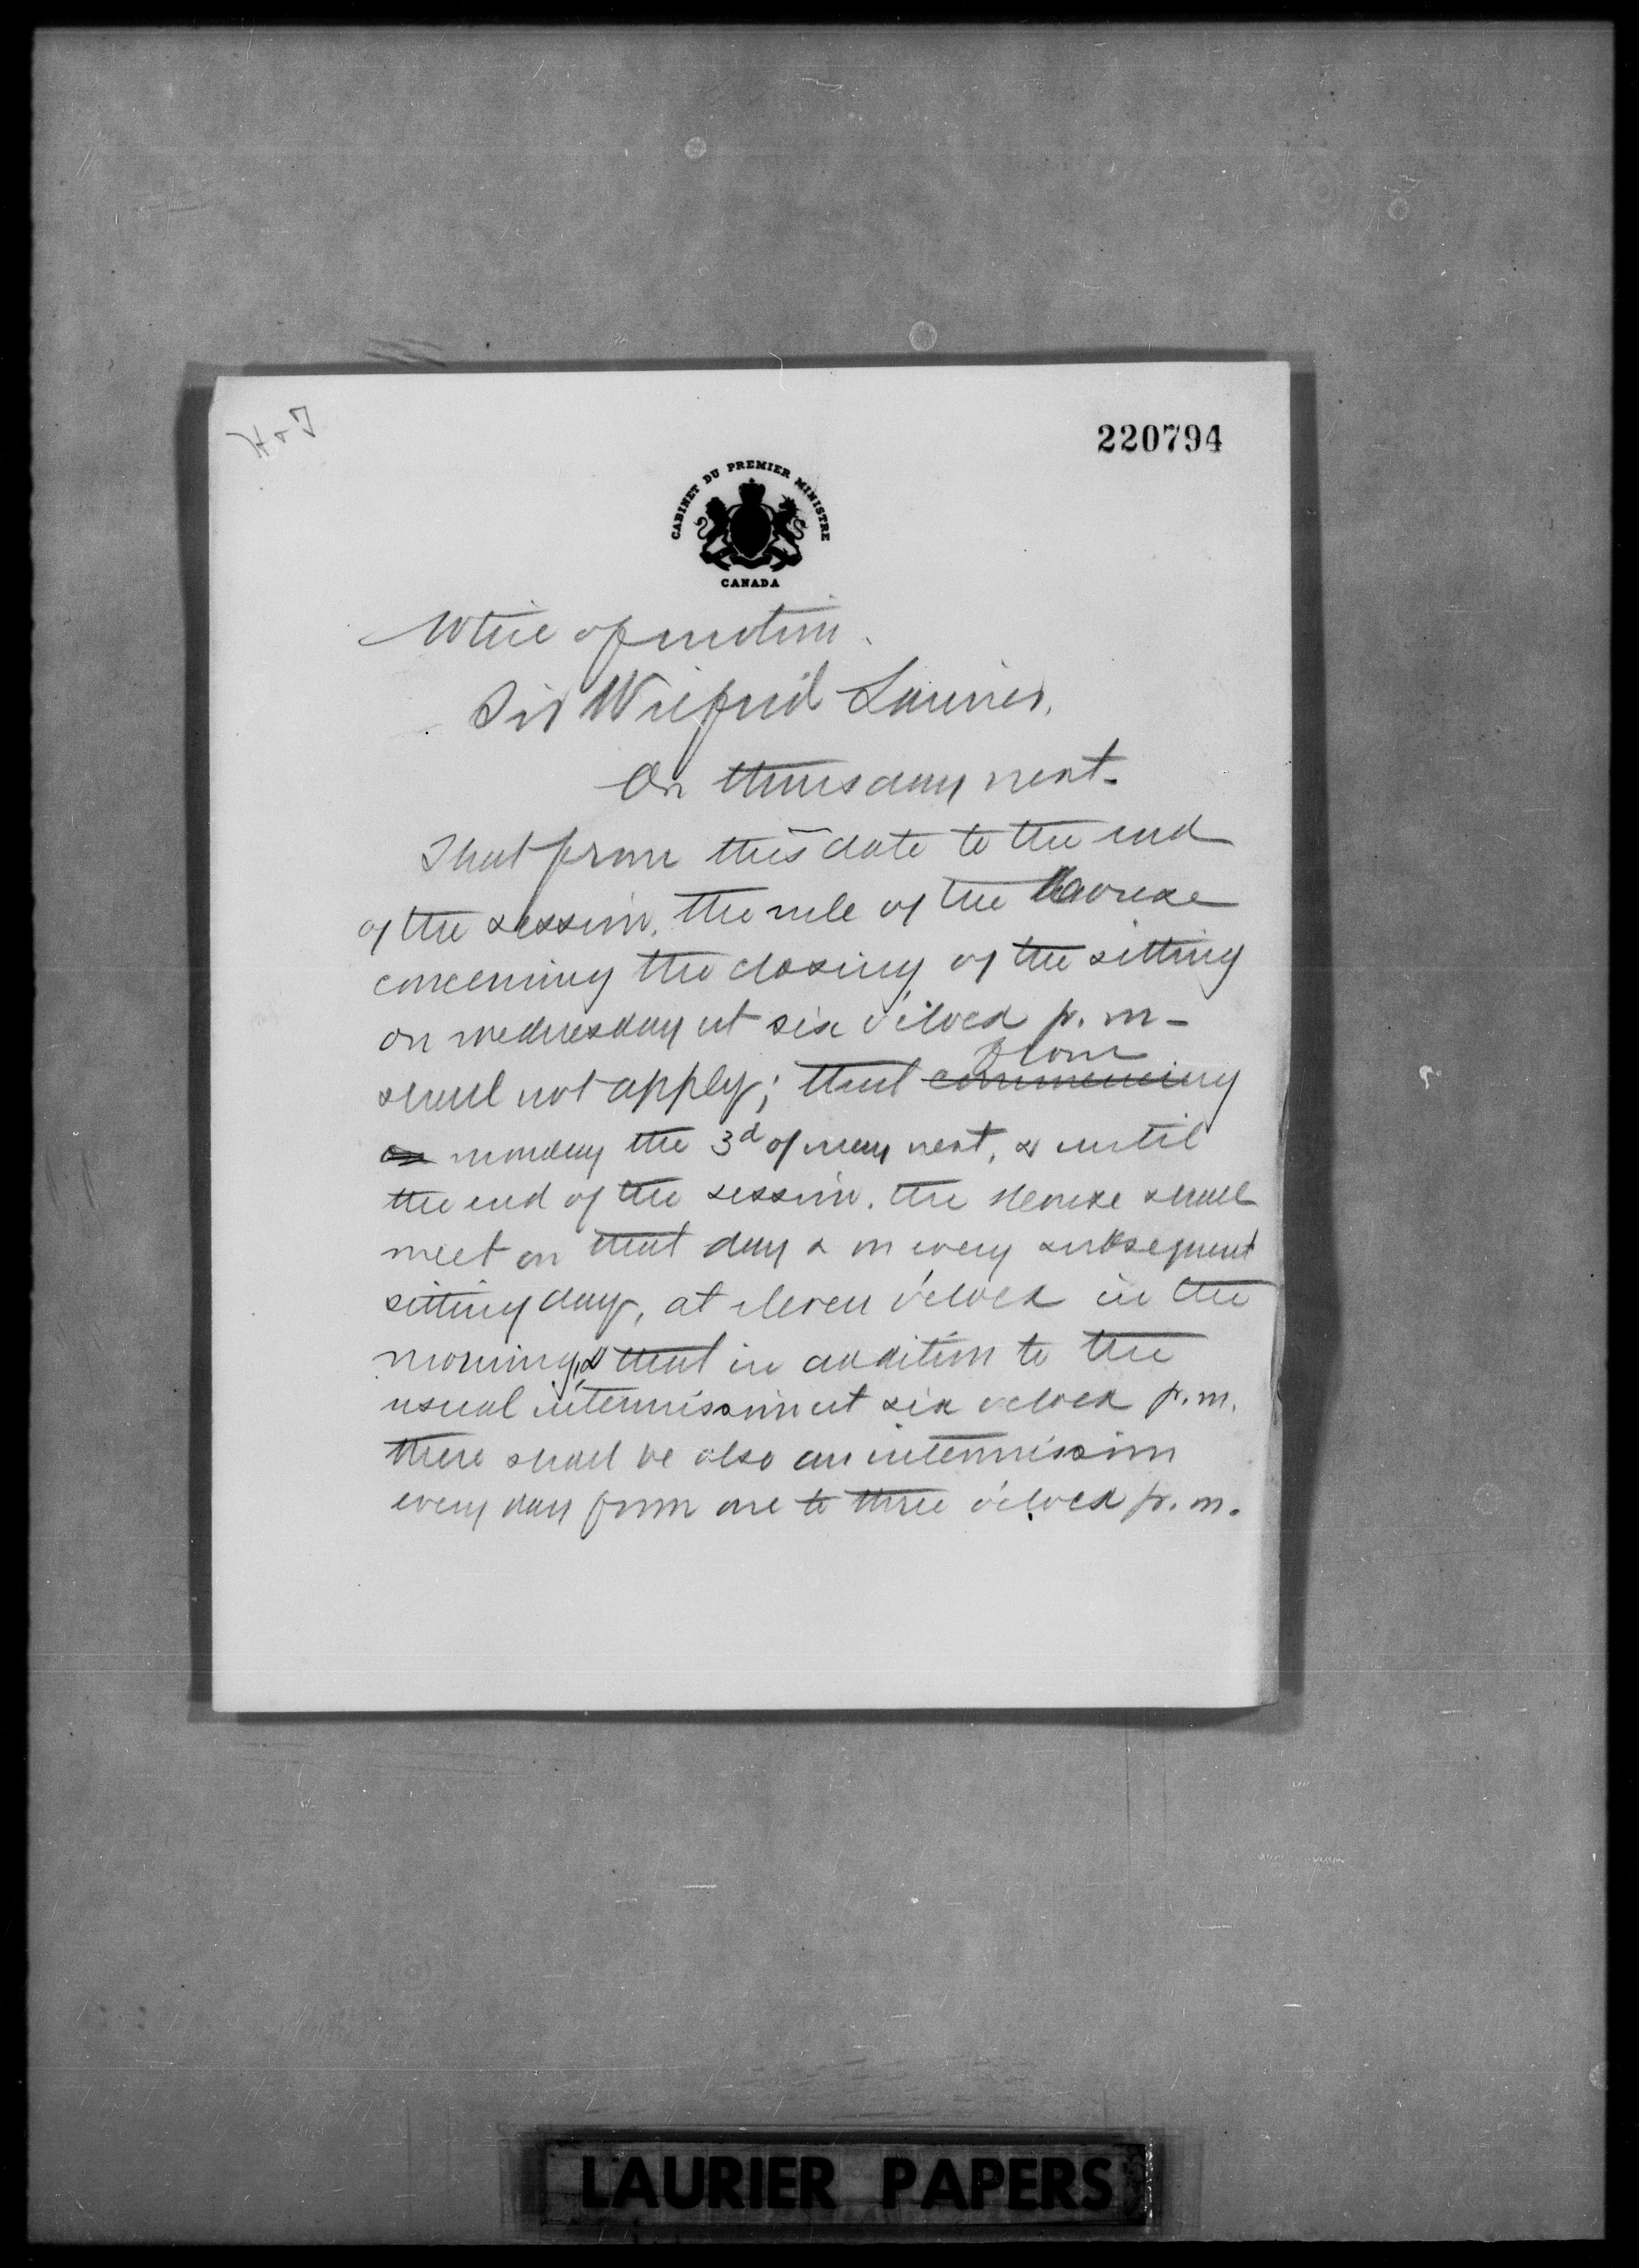 220794
CABINET DU PREMIER MINISTRE
CANADA
Notice of motion.
Sir Wilfrid Laurier.
On thursday next.
That from this date to the end
of the session, the rule of the House
concerning the closing of the sitting
on wednesday at six o'clock p. m.
shall not apply; that commencing
from
on monday the 3d of may next, & until
the end of the session, the House shall
meet on that day & on every subsequent
sitting day, at eleven o'clock in the
morning, & that in addition to the
usual intermission at six o'clock p. m.
there shall be also an intermission
every day from one to three o'clock p. m.
LAURIER PAPERS